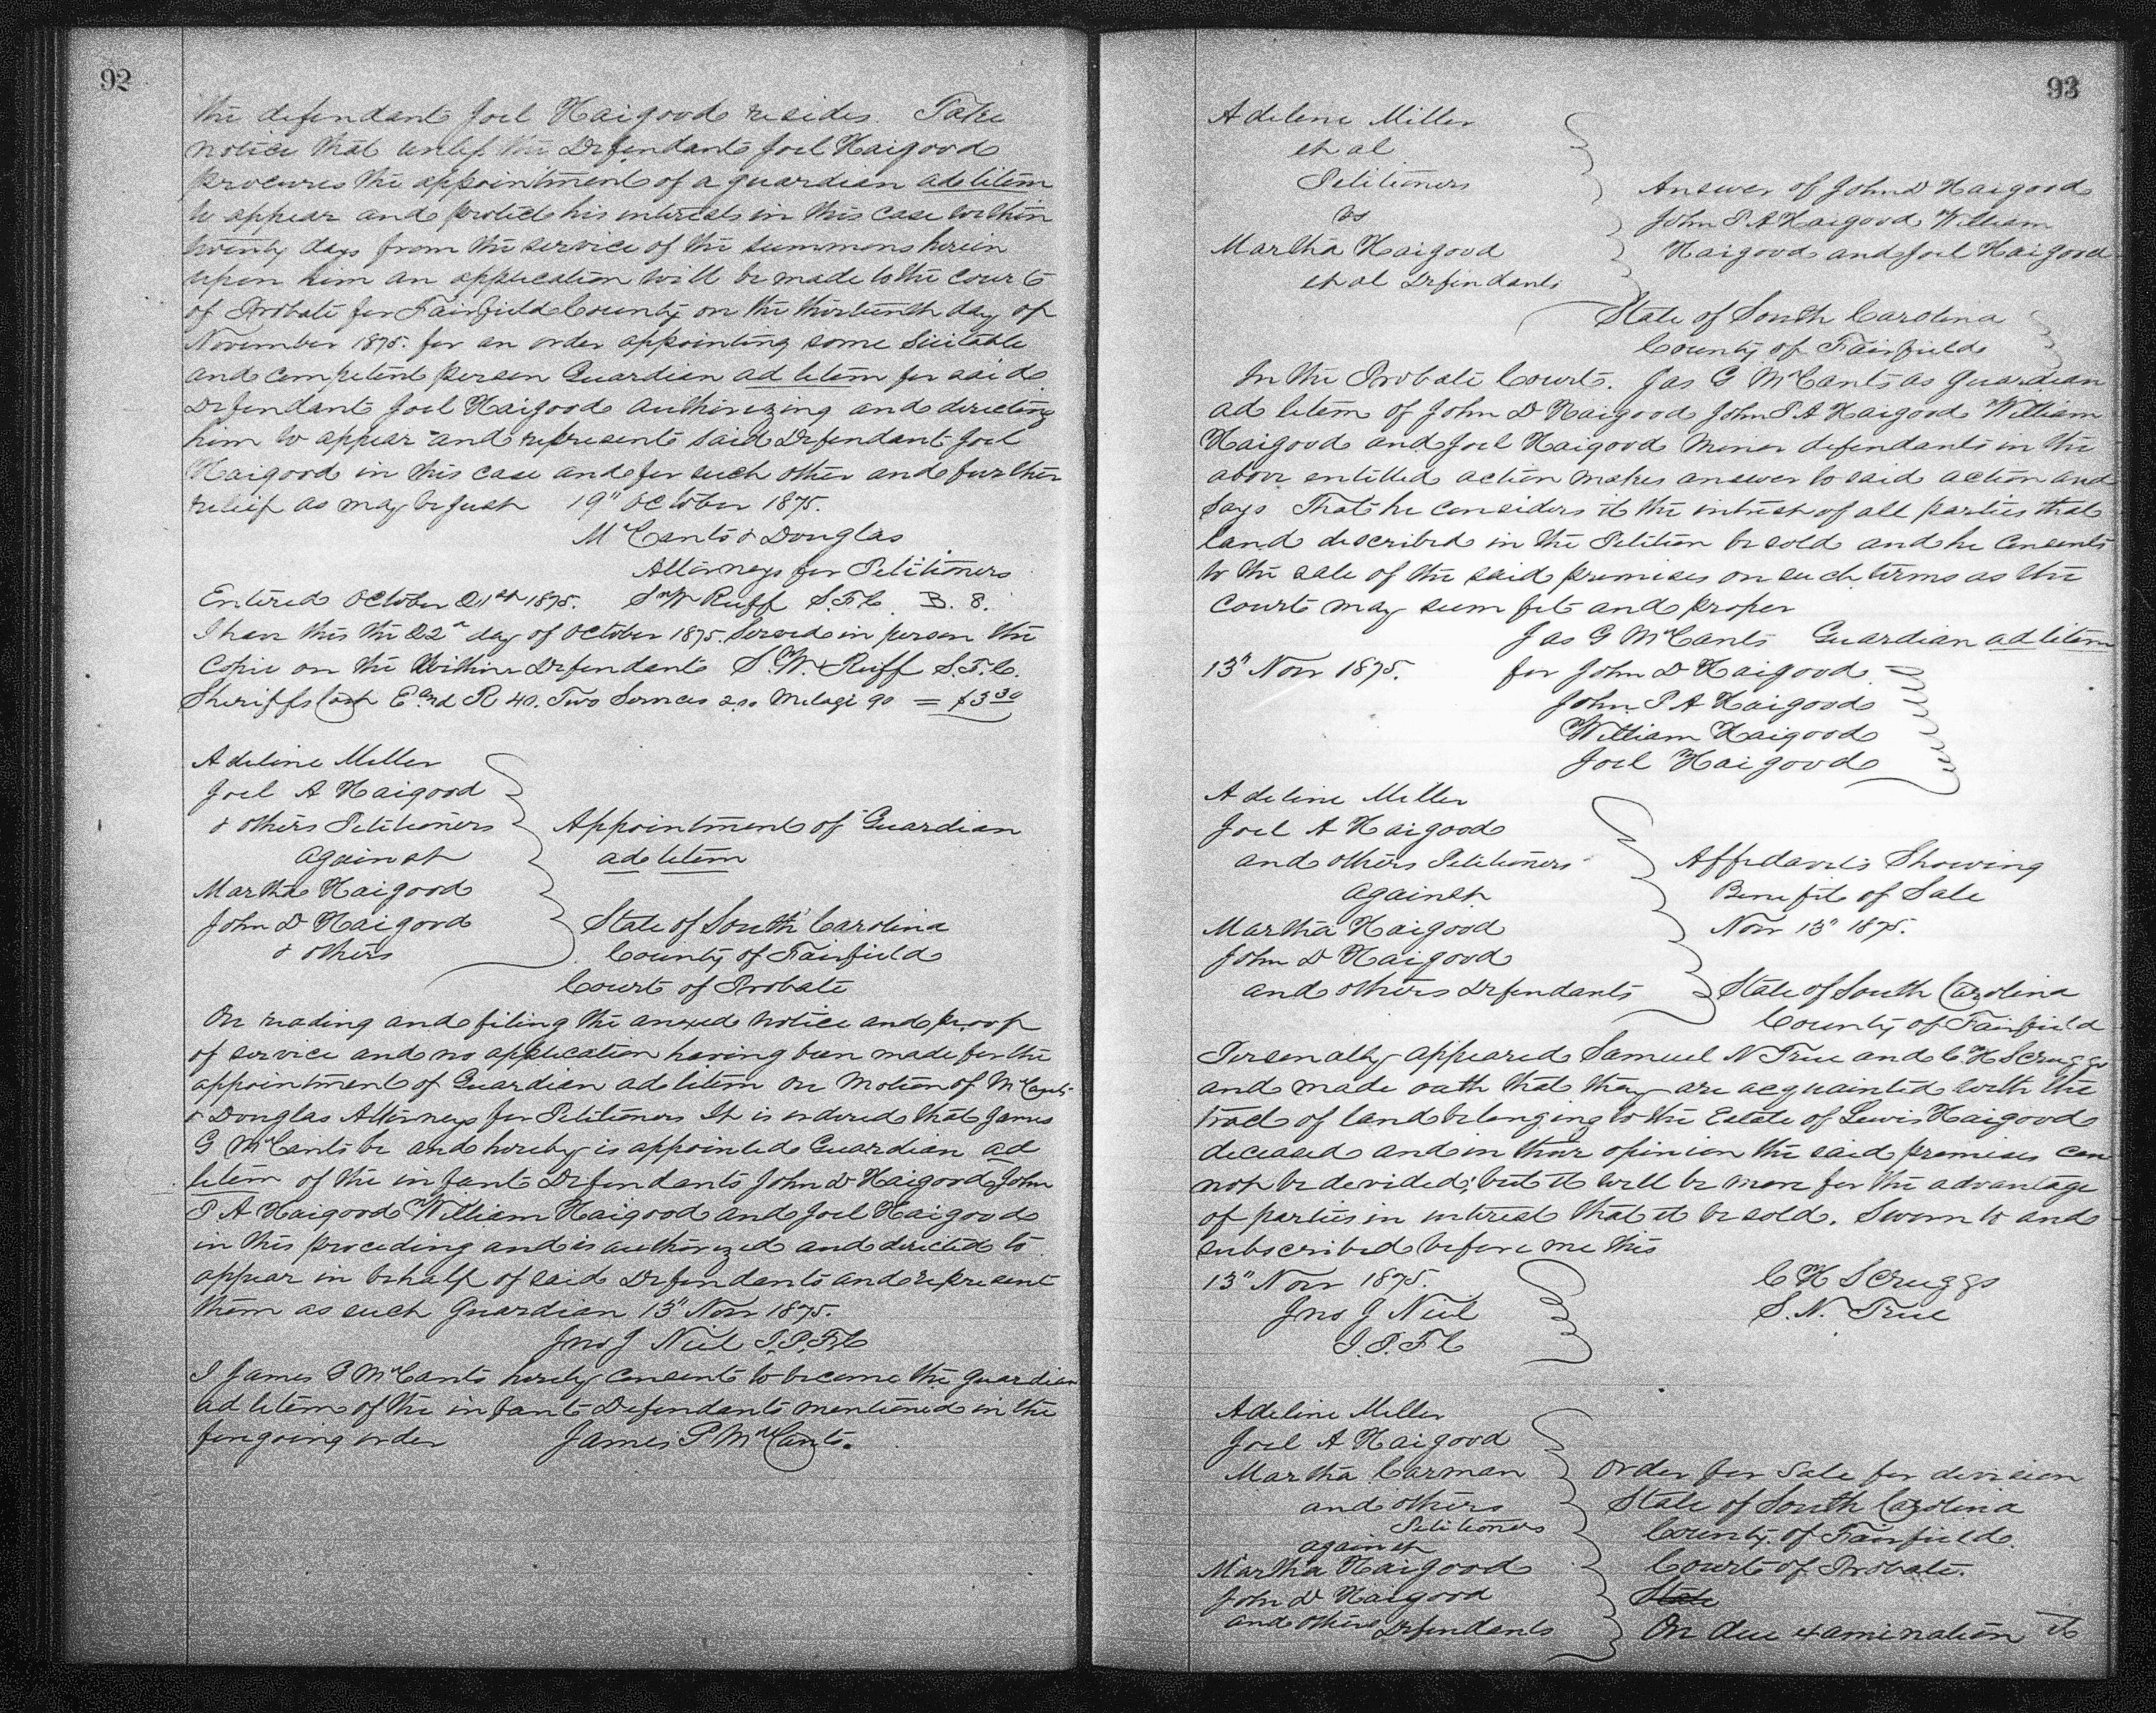 92
the defendant Joel Haigood resides. Take
notice that unless the Defendant Joel Haigood
procures the appointment of a guardian ad litem
to appear and protect his interests in this case within
twenty days from the service of the summons herein
upon him an application will be made to the Court
of Probate for Fairfield County on the thirteenth day of
November 1875. for an order appointing some suitable
and competent person Guardian ad litem for said
Defendant Joel Haigood authorizing and directing
him to appear and represent said Defendant Joel
Haigood in this case and for such other and further
relief as may be just 19" October 1875.
McCants & Douglas
Attorneys for Petitioners
Entered October 21st 1875. S W Ruff S.F.C. B. 8.
I have this the 22d day of October 1875. Served in person the
Copie on the Within Defendants S. W. Ruff S.F.C.
Sheriffs Cost E and R 40. Two Services 2.00 Milage 90 = $3 30
Adeline Miller
Joel A Haigood
& others Petitioners
against
Martha Haigood
John D Haigood
& others
Appointment of Guardian
ad litem
State of South Carolina
County of Fairfield
Court of Probate
On reading and filing the anxed notice and proof
of service and no application having been made for the
appointment of Guardian ad litem on Motion of McCants
& Douglas Attorneys for Petitioners It is ordered that James
G McCants be and hereby is appointed Guardian ad
litem of the infant Defendants John D Haigood John
P A Haigood William Haigood and Joel Haigood
in this proceding and is authorized and directed to
appear in behalf of said Defendants and represent
them as such Guardian 13" Nov 1875.
Jno J Neil J.P.F.C
I James G McCants hereby consent to become the guardian
ad litem of the infant Defendants mentioned in the
foregoing order James G McCants.
93
Adeline Miller
et al
Petitioners
vs
Martha Haigood
et al Defendants
Answer of John D Haigood
John P A Haigood William
Haigood and Joel Haigood
State of South Carolina
County of Fairfield
In the Probate Court. Jas G McCants as guardian
ad litem of John D Haigood John P A Haigood William
Haigood and Joel Haigood Minor defendants in the
above entitled action makes answer to said action and
Says That he considers it the intrest of all parties that
land described in the Petition be sold and he Consents
to the sale of the said premises on such terms as the
Court may seem fit and proper
Jas G McCants Guardian ad litem
13" Nov 1875. for John D Haigood
John P A Haigood
William Haigood
Joel Haigood
Adeline Miller
Joel A Haigood
and others Petitioners
against
Martha Haigood
John D Haigood
and others Defendants
Affidavits Showing
Benefit of Sale
Nov 13" 1875.
State of South Carolina
County of Fairfield
Personally appeared Samuel N True and C. H Scruggs
and made oath that they are acquainted with the
tract of land belonging to the Estate of Lewis Haigood
deceased and in their opinion the said premises can
not be devided; but it will be more for the advantage
of parties in interest that it be sold. Sworn to and
subscribed before me this
13" Nov 1875.
Jno J Neil
J.P.F.C
C H Scruggs
S. N. True
Adeline Miller
Joel A Haigood
Martha Carman
and others
Petitioners
against
Martha Haigood
John D Haigood
and others Defendants
Order for Sale for division
State of South Carolina
County of Fairfield.
Court of Probate.
State
On due examination it